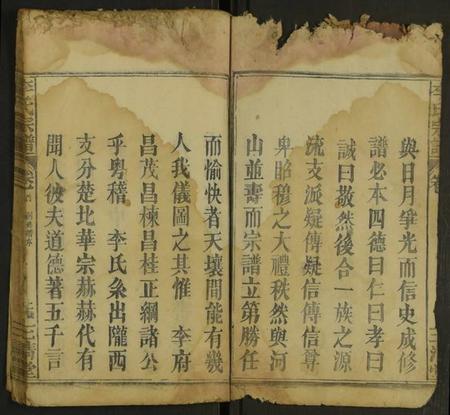 與日月爭光而信史成修
譜必本四德曰仁曰孝曰
誠曰敬然後合一族之源
流支派疑傳疑信傳信尊
卑昭穆之大禮秩然與河
山並壽而宗譜立第勝任
而愉快者天壤間能有幾
人我儀圖之其惟 李府
昌茂昌棟昌桂正綱諸公
乎粤稽 李氏系出隴西
支分楚北華宗赫赫代有
聞人彼夫道德著五千言
李氏宗譜 卷
李氏宗譜 卷